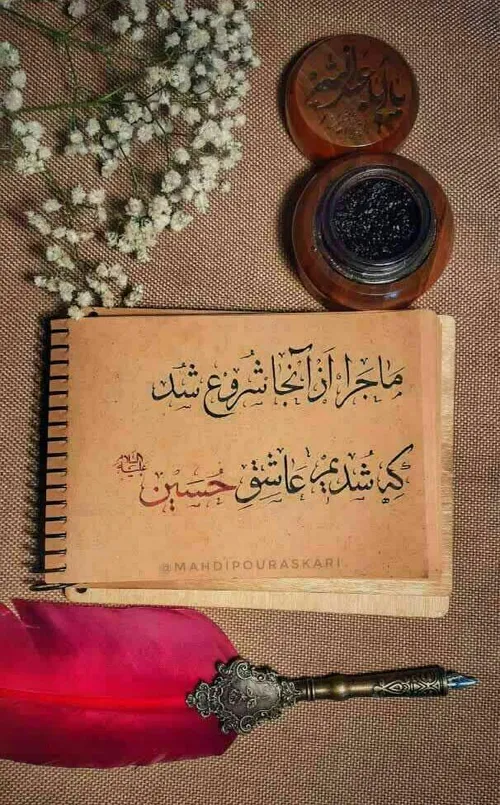 یا اباعبدالله
ماجرا از آنجا شروع شد
که شدیم عاشق حسین علیه السلام
@MAHDIPOURASKARI